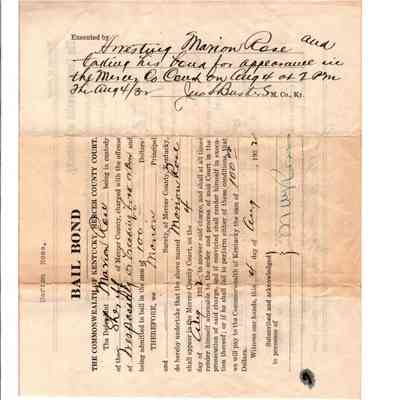 Executed by
Arresting Marion Rose and
taking his bond for appearance in
the Mercer Co Court on Aug 4 at 2 Pm
This Aug 4/32
S. M. Co., Ky.
Marion Rose.
BAIL BOND
THE COMMONWEALTH OF KENTUCKY, MERCER COUNTY COURT.
The Defendant Marion Rose being in custody
of the Sheriff of Mercer County, charged with the offense
of Trespassing &
being admitted to bail in the sum of 100 Dollars
THEREFORE, we Marion Principal
and Surety, of Mercer County, Kentucky,
do hereby undertake that the above named Marion Rose
shall appear in the Mercer County Court, on the 4
day of Aug 1932 to answer said charge, and shall at all times
render himself amenable to the order and process of said Court in the
prosecution of said charge, and if convicted shall render himself in execu-
tion thereof; or if he shall fail to perform either of these conditions, that
we will pay to the Commonwealth of Kentucky the sum of 100
Dollars.
Witness our hands, this 4 day of Aug 1932
Subscribed and acknowledged
to